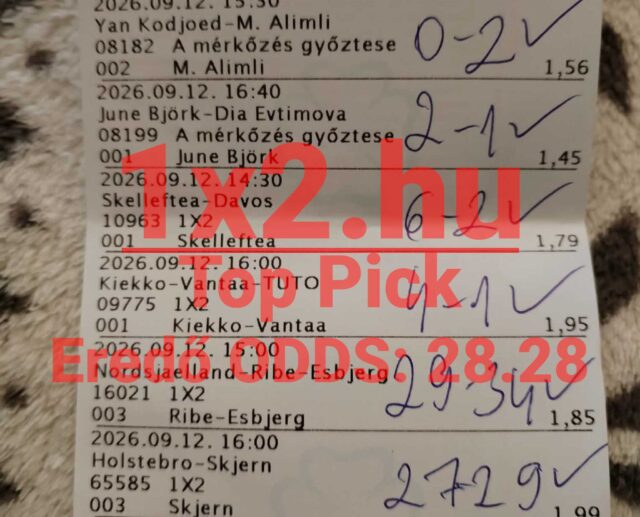 2026.09.12. 15:30
Yan Kodjoed-M. Alimli
08182 A mérkőzés győztese 0-2 ✓
002 M. Alimli 1,56
2026.09.12. 16:40
June Björk-Dia Evtimova
08199 A mérkőzés győztese 2-1 ✓
001 June Björk 1,45
1x2.hu
2026.09.12. 14:30
Skelleftea-Davos
10963 1X2 6-2 ✓
001 Skelleftea 1,79
2026.09.12. 16:00
Top Pick
Kiekko-Vantaa-TUTO
09775 1X2 4-1 ✓
001 Kiekko-Vantaa 1,95
2026.09.12. 15:00
Eredő ODDS: 28.28
Nordsjaelland-Ribe-Esbjerg
16021 1X2 29-34 ✓
003 Ribe-Esbjerg 1,85
2026.09.12. 16:00
Holstebro-Skjern
65585 1X2 27-29 ✓
003 Skjern 1,99